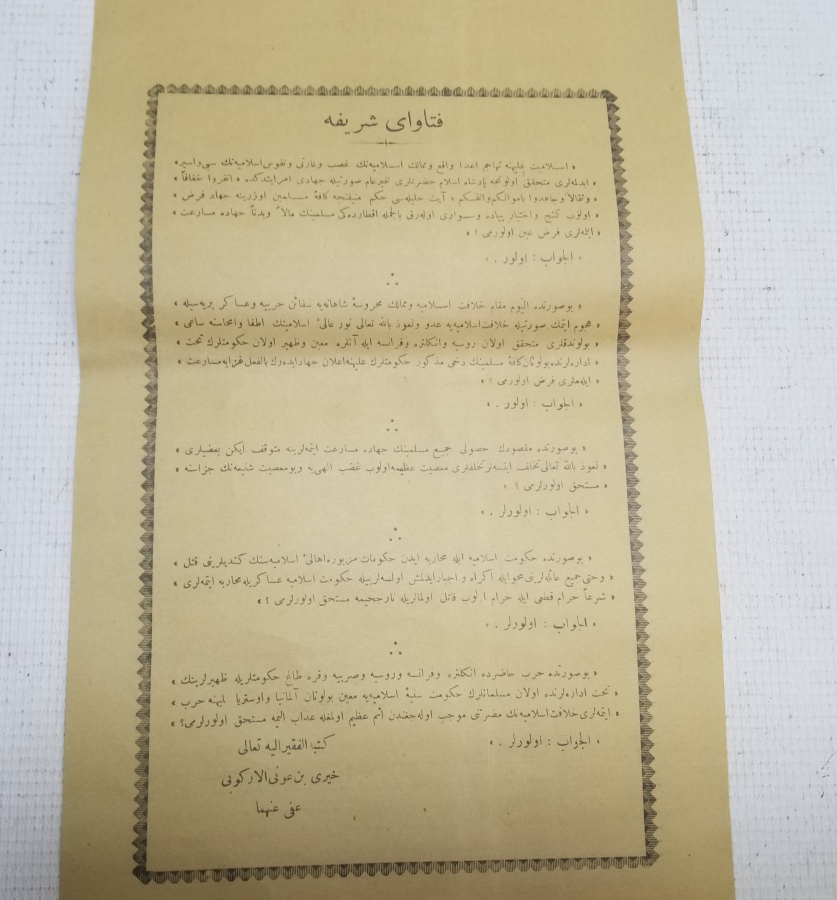 فتاواى شريفه
« اسلاميت عليهنه تهاجم اعدا واقع وممالك اسلاميه‌نك غصب وغارتى ونفوس اسلاميه‌نك سبى واسير »
« ايدلمه‌لرى متحقق اولونجه پادشاه اسلام حضرتلرى نفيرعام صورتيله جهادى امر ايتدكده « انفروا خفافاً »
« وثقالاً وجاهدوا باموالكم وانفسكم » آيت جليله‌سى حكم منيفنجه كافهٔ مسلمين اوزرينه جهاد فرض »
« اولوب كنج واختيار پياده وسوارى اوله‌رق بالجمله اقطارده‌كى مسلمينك مالاً وبدناً جهاده مسارعت »
« ايتمه‌لرى فرض عين اولورمى ؟ »
« الجواب : اولور . »
« بوصورتده اليوم مقام خلافت اسلاميه وممالك محروسهٔ شاهانه‌يه سفائن حربيه وعساكر بريه‌سيله »
« هجوم ايتمك صورتيله خلافت اسلاميه‌يه عدو ونعوذ بالله تعالى نور عالىٔ اسلاميتك اطفا وامحاسنه ساعى »
« بولوندقلرى متحقق اولان روسيه وانكلتره وفرانسه ايله آنلره معين وظهير اولان حكومتلرك تحت »
« اداره‌لرنده بولونان كافهٔ مسلمينك دخى مذكور حكومتلرك عليهنه اعلان جهاد ايده‌رك بالفعل غزايه مسارعت »
« ايتمه‌لرى فرض اولورمى ؟ »
« الجواب : اولور . »
« بوصورتده مقصودك حصولى جميع مسلمينك جهاده مسارعت ايتمه‌لرينه متوقف ايكن بعضيلرى »
« نعوذ بالله تعالى تخلف ايتسه‌لر تخلفلرى معصيت عظيمه اولوب غضب الهى‌يه وبو معصيت شنيعه‌نك جزاسنه »
« مستحق اولورلرمى ؟ »
« الجواب : اولورلر . »
« بوصورتده حكومت اسلاميه ايله محاربه ايدن حكومات مزبوره اهالىٔ اسلاميه‌سنك كنديلرينى قتل »
« وحتى جميع عائله‌لرينى محو ايله اكراه و اجبار ايدلمش اولسه‌لر بيله حكومت اسلاميه عساكريله محاربه ايتمه‌لرى »
« شرعاً حرام قطعى ايله حرام اولوب قاتل اولمالريله نار جحيمه مستحق اولورلرمى ؟ »
« الجواب : اولورلر . »
« بوصورتده حرب حاضرده انكلتره وفرانسه وروسيه وصربيه وقره طاغ حكومتلريله ظهيرلرينك »
« تحت اداره‌لرنده اولان مسلمانلرك حكومت سنيهٔ اسلاميه‌يه معين بولونان آلمانيا واوستريا عليهنه حرب »
« ايتمه‌لرى خلافت اسلاميه‌نك مضرتنى موجب اوله‌جغندن اثم عظيم اولمغله عذاب اليمه مستحق اولورلرمى؟ »
« الجواب : اولورلر . »
كتبه الفقير اليه تعالى
خيرى بن عونى الاركوبى
عفى عنهما